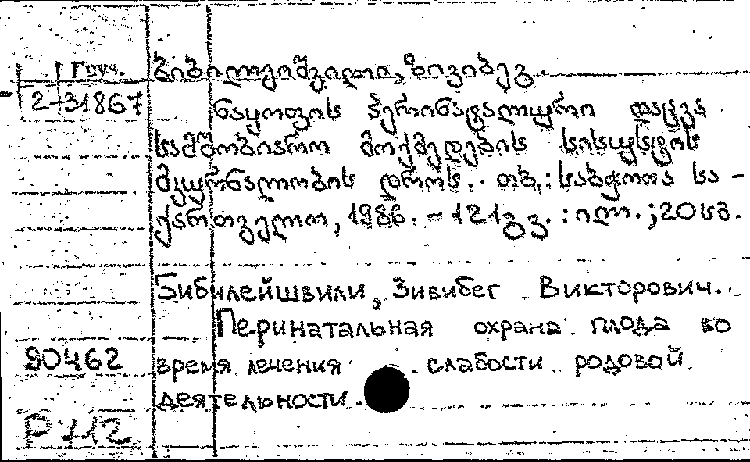 Груч.
2-31867
ბიბილეიშვილი, ზივიბეგ.
ნაყოფის პერინატალური დაცვა
სამშობიარო მოქმედების სისუსტის
მკურნალობის დროს. თბ.: საბჭოთა სა-
ქართველო, 1986. - 121გვ. : ილ. ; 20სმ.
Бибилейшвили, Зивибег Викторович.
Перинатальная охрана плода во
90462
время лечения слабости родовой
деятельности.
Р 112